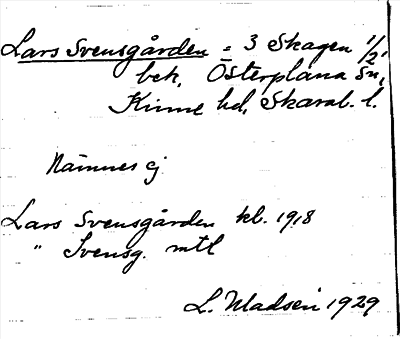 Lars Svensgården = 3 Skagen 1/2
bek, Österplana Sn,
Kinne hd, Skarab. l.
Nämnes ej
Lars Svensgården kb. 1918
" Svensg. mtl
L. Madsen 1929